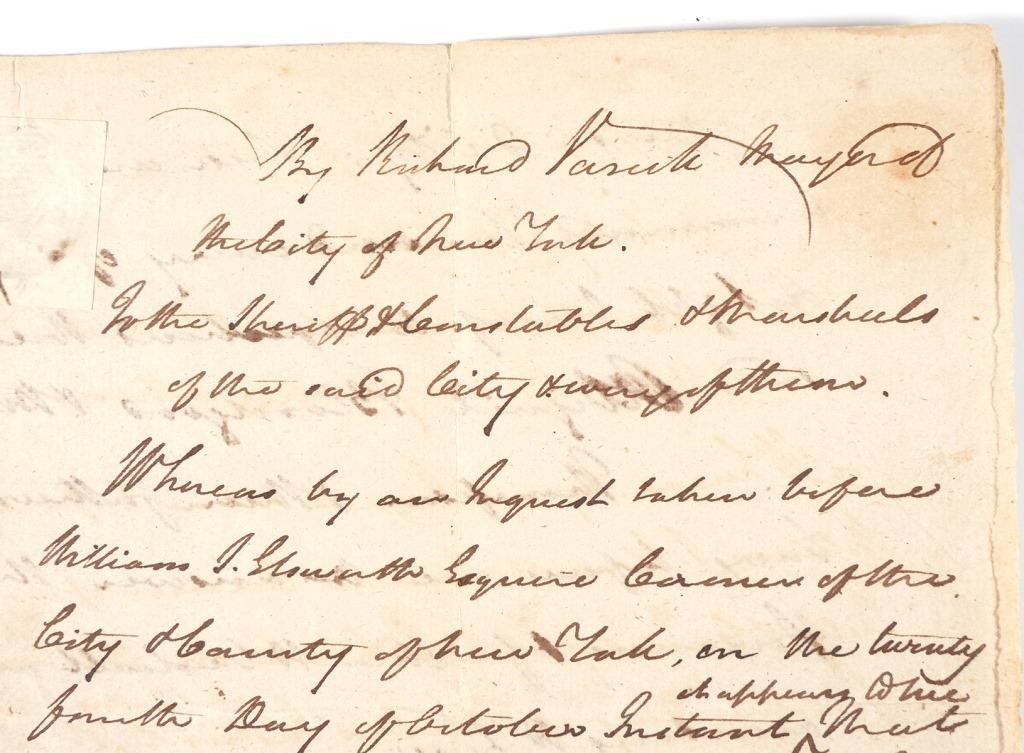 By Richard Varick Mayor of
the City of New York.
To the Sheriff & Constables & Marshalls
of the said City & every of them.
Whereas by an Inquest taken before
William J. Elsworth Esquire Coroner of the
City & County of New York, on the twenty
it appears to me
fourth Day of October Instant That